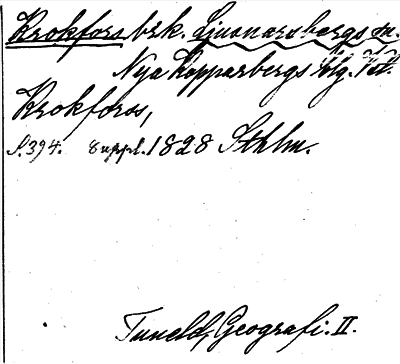 Krokfors brk. Ljusnarsbergs sn.
Nya Kopparbergs blg. Vstl.
Krokforss,
S. 394. 8 uppl. 1828 Sthlm.
Tuneld, Geografi. II.